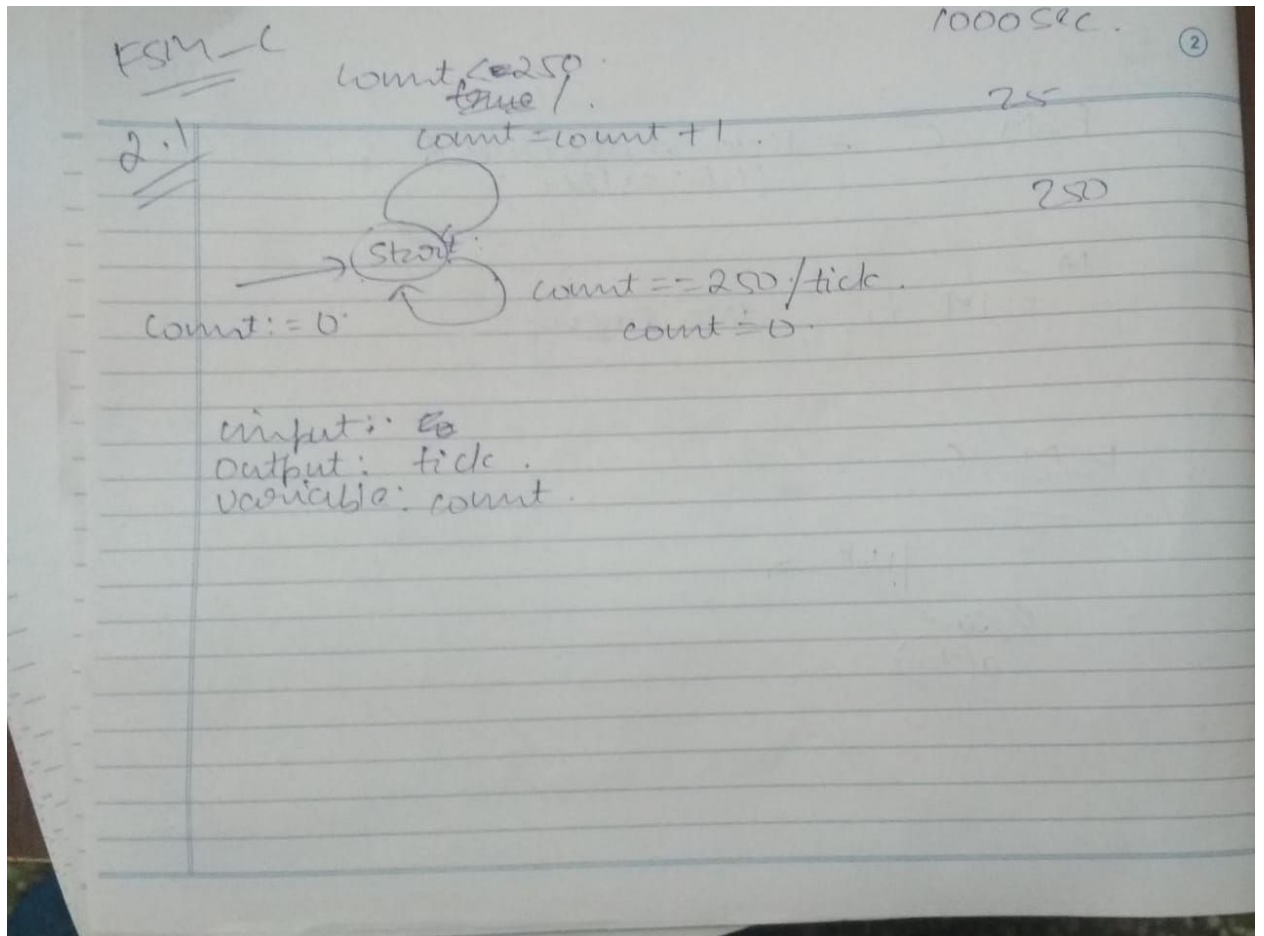 1000 sec.
2
FSM_C
count <=250
true /.
25
2.1
count = count + 1.
250
Start
count == 250 / tick.
count := 0
count := 0.
input:
output: tick.
variable: count.